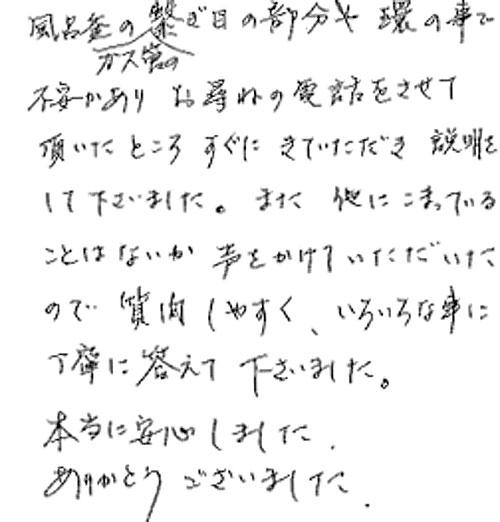 風呂釜の繋ぎ目の部分や環の事で
ガス管の
不安があり お尋ねの電話をさせて
頂いたところ すぐに きていただき 説明を
して下さいました。また 他に こまっている
ことはないか 声をかけていただいた
ので 質問しやすく、いろいろな事に
丁寧に 答えて 下さいました。
本当に安心しました.
ありがとう ございました.